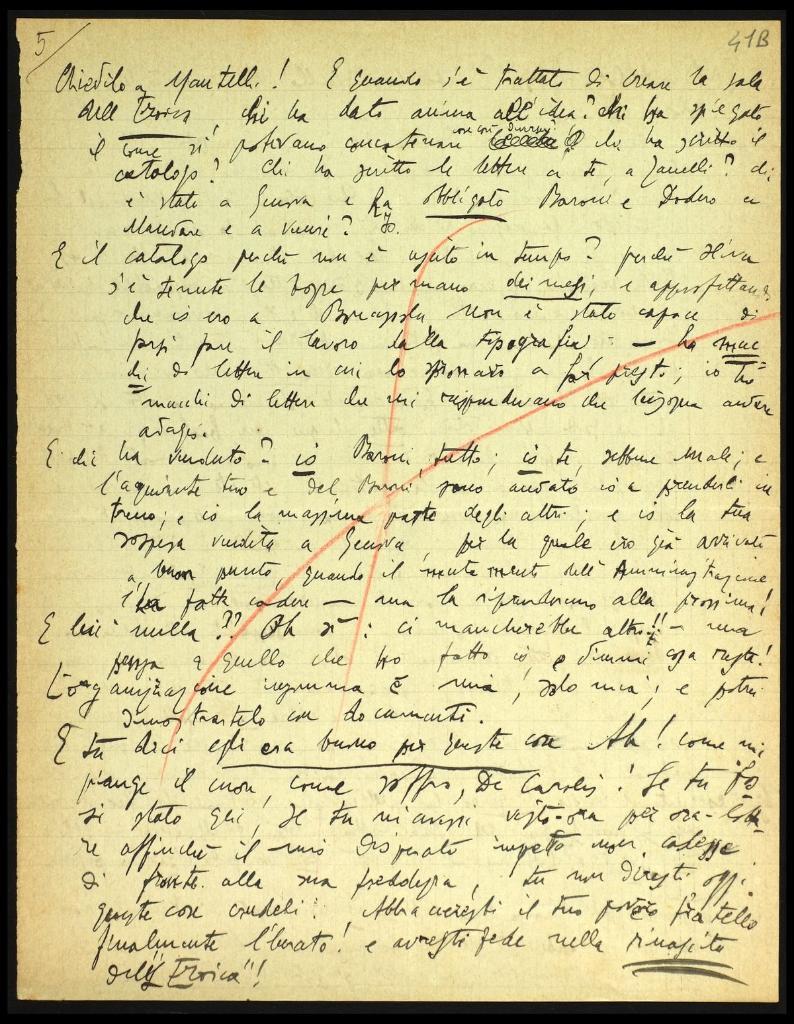 5 41B
Chiedilo a Mantelli! E quando s'è trattato di creare la sala
dell'Eroica, chi ha dato anima all'idea? Chi ha spiegato
il come si potevano concatenare ? chi ha scritto il
catalogo? Chi ha scritto le lettere a te, a Zanelli? chi
è stato a Genova e ha obbligato Baroni e Dodero a
Mandare e a venire? Io.
E il catalogo perché non è uscito in tempo? perché
s'è tenute le bozze per mano dei mesi, e approfittando
che io ero a non è stato capace di
farsi fare il lavoro dalla tipografia: — ha muc=
chi di lettere in cui lo spronavo a far presto; io ho
mucchi di lettere che mi rispondevano che bisogna andare
adagio.
E chi ha venduto? io Baroni tutto; io te, sebbene male; e
l'acquirente tuo e del Baroni sono andato io a prenderli in
treno; e io la massima parte degli altri; e io la tua
sospesa vendita a Genova, per la quale ero già arrivato
a buon punto, quando il dell'Amministrazione
l'ha fatta cadere — ma la riprenderemo alla prossima!
E lui nulla?? Oh sì: ci mancherebbe altro!! — ma
pensa a quello che ho fatto io e dimmi cosa resta!
L'organizzazione insomma è mia, solo mia; e potrei
dimostrartelo con documenti.
E tu dici egli era buono per queste cose Ah! come mi
piange il cuore, come soffro, De Carolis! Se tu fos
si stato qui, se tu mi avessi visto ora per ora
re affinché il mio disperato impeto non cadesse
di fronte alla sua freddezza, tu non diresti oggi
queste cose crudeli! Abbracceresti il tuo povero fratello
finalmente liberato! e avresti fede nella rinascita
dell'"Eroica"!